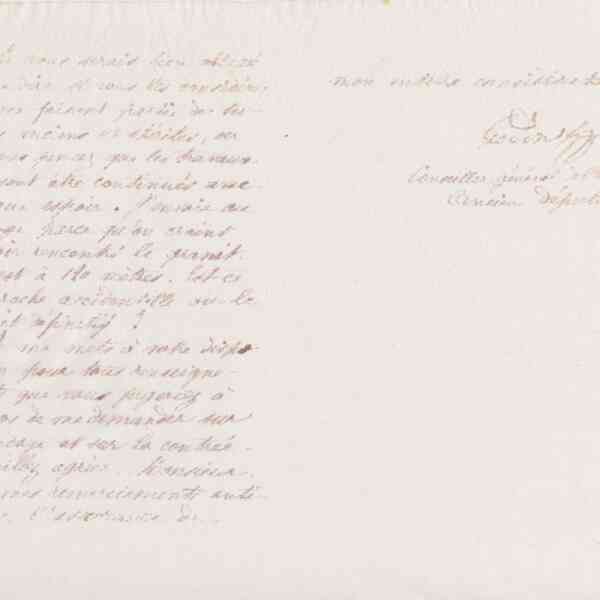 vous serais bien obligé
dire si vous les considérez
faisant partie de ter-
mêmes et stériles, ou
pensez que les travaux
être continués avec
que espoir. J'envoie au
parce qu'on craint
rencontré le granit.
est à 120 mètres. Est-ce
roche accidentelle ou le
définitif ?
me mets à votre dispo-
pour tous renseigne-
que vous jugerez à
de me demander sur
et sur la contrée.
agréer, Monsieur,
mes remerciements anti-
l'assurance de
mon entière considérat
Conseiller général
Ancien Député